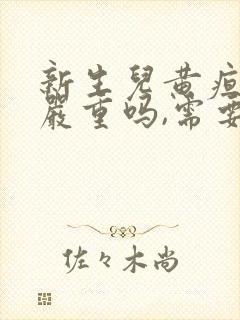 新生兒黄疸
嚴重吗,需要
佐々木尚